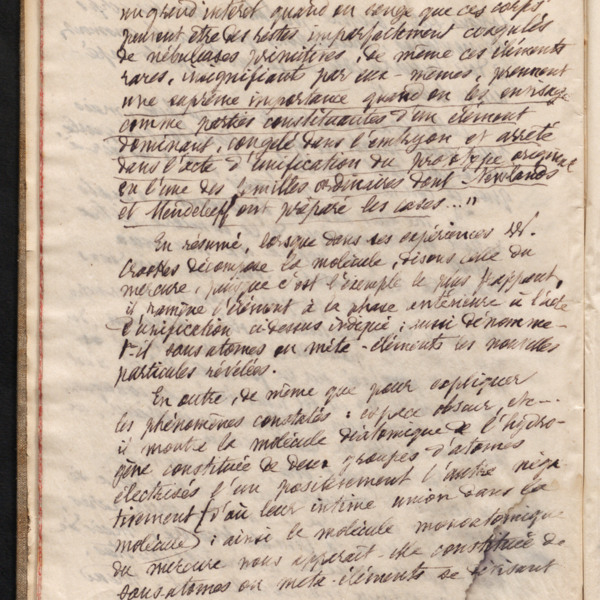 un grand intérêt quand on songe que ces corps
peuvent être des restes imparfaitement coagulés
de nébuleuses primitives, de même ces éléments
rares, insignifiants par eux-mêmes, prennent
une suprême importance quand on les envisage
comme parties constituantes d'un élément
dominant, congelé dans l'embryon et arrêté
dans l'acte d'unification du prototype original
en l'une des familles ordinaires dont Newlands
et Mendeleeff ont préparé les cases..."
En résumé, lorsque dans ses expériences W.
Crookes décompose la molécule, disons celle du
mercure, puisque c'est l'exemple le plus frappant,
il ramène l'élément à la phase antérieure à l'acte
d'unification ci-dessus indiqué ; aussi dénomme-
t-il sous atomes ou méta-éléments les nouvelles
particules révélées.
En outre, de même que pour expliquer
les phénomènes constatés : espace obscur, etc...
il montre la molécule diatomique de l'hydro-
gène constituée de deux groupes d'atomes
électrisés l'un positivement l'autre néga-
tivement (d'où leur intime union dans la
molécule) ; ainsi la molécule monoatomique
du mercure nous apparaît-elle constituée de
sous atomes ou méta-éléments se